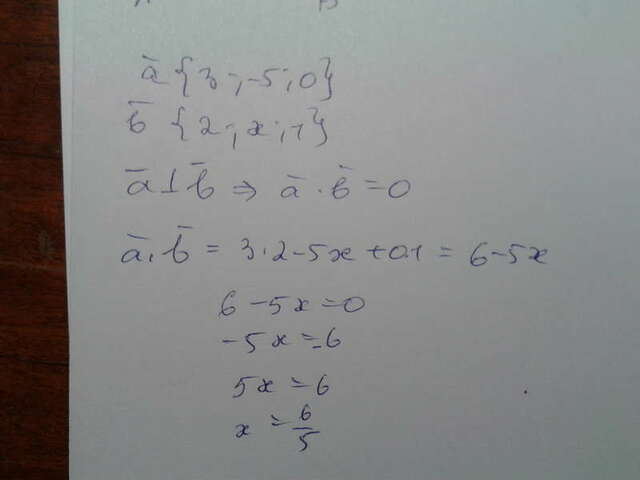 ā {3; -5; 0}
b̄ {2; x; 1}
ā ⊥ b̄ ⇒ ā · b̄ = 0
ā · b̄ = 3·2-5x+0·1 = 6-5x
6-5x=0
-5x=-6
5x=6
x = 6/5